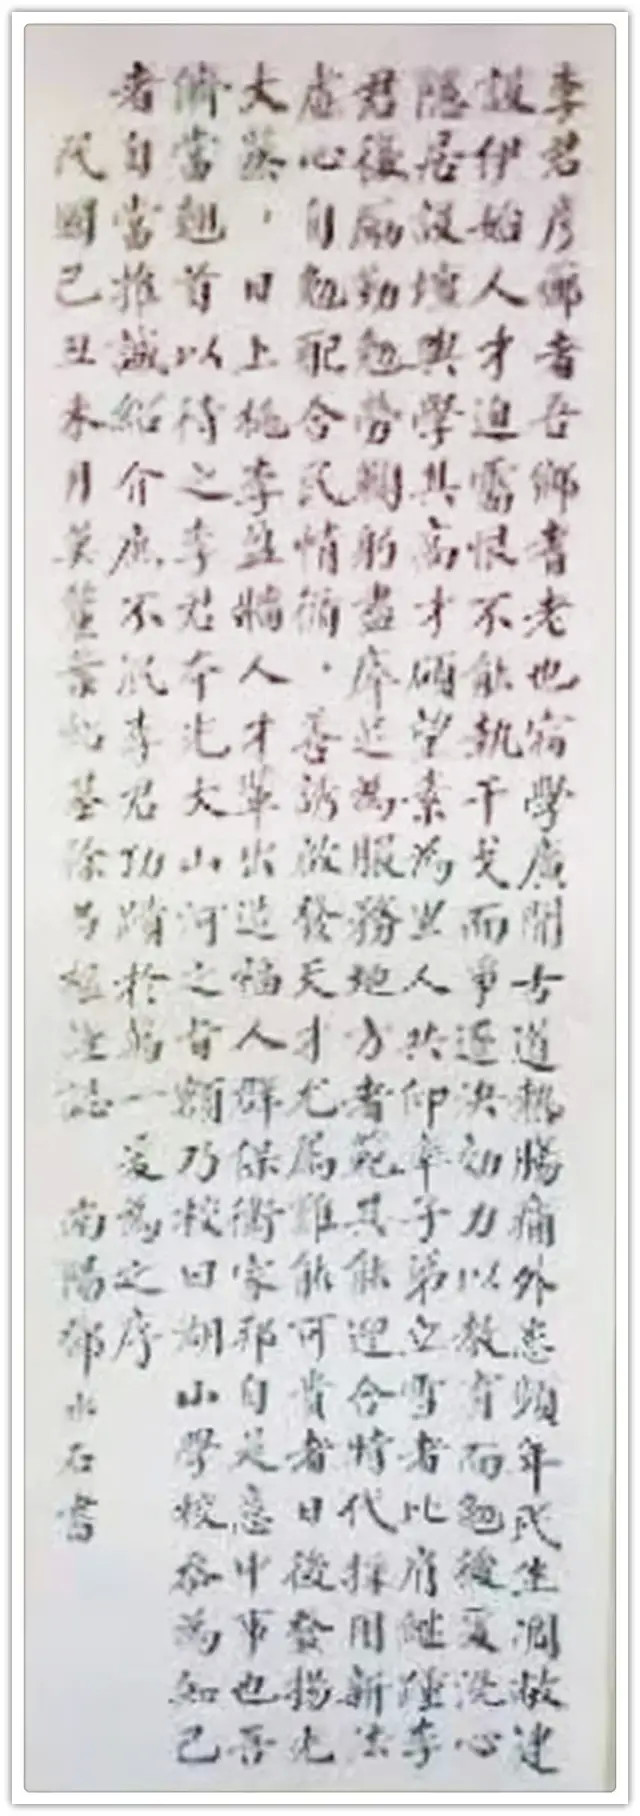 李君彦郷者吾鄉耆老也宿學廣聞古道熱腸痛外患頻年民生凋敝建
設伊始人才迫需恨不能執干戈而事逐決効力以教育而勉後夏洗心
隱居設壇興學其高才碩望素為世人共仰率子弟立雪者比肩繼踵李
君復勵勤勉勞鞠躬盡瘁足為服務地方者範其能迎合時代採用新法
虛心自勉配合民情循善誘啟發天才尤為難能可貴者日後發揚光
大蒸日上桃李盈牆人才輩出造福人群保衛家邦自是意中事也吾
儕當翹首以待之李君本光大山河之旨顏乃校曰湖山學校忝為知己
者自當推誠紹介庶不泯李君功蹟於萬一爰為之序
民國己丑未月英釐耆基徐誌 南陽鄧水石書